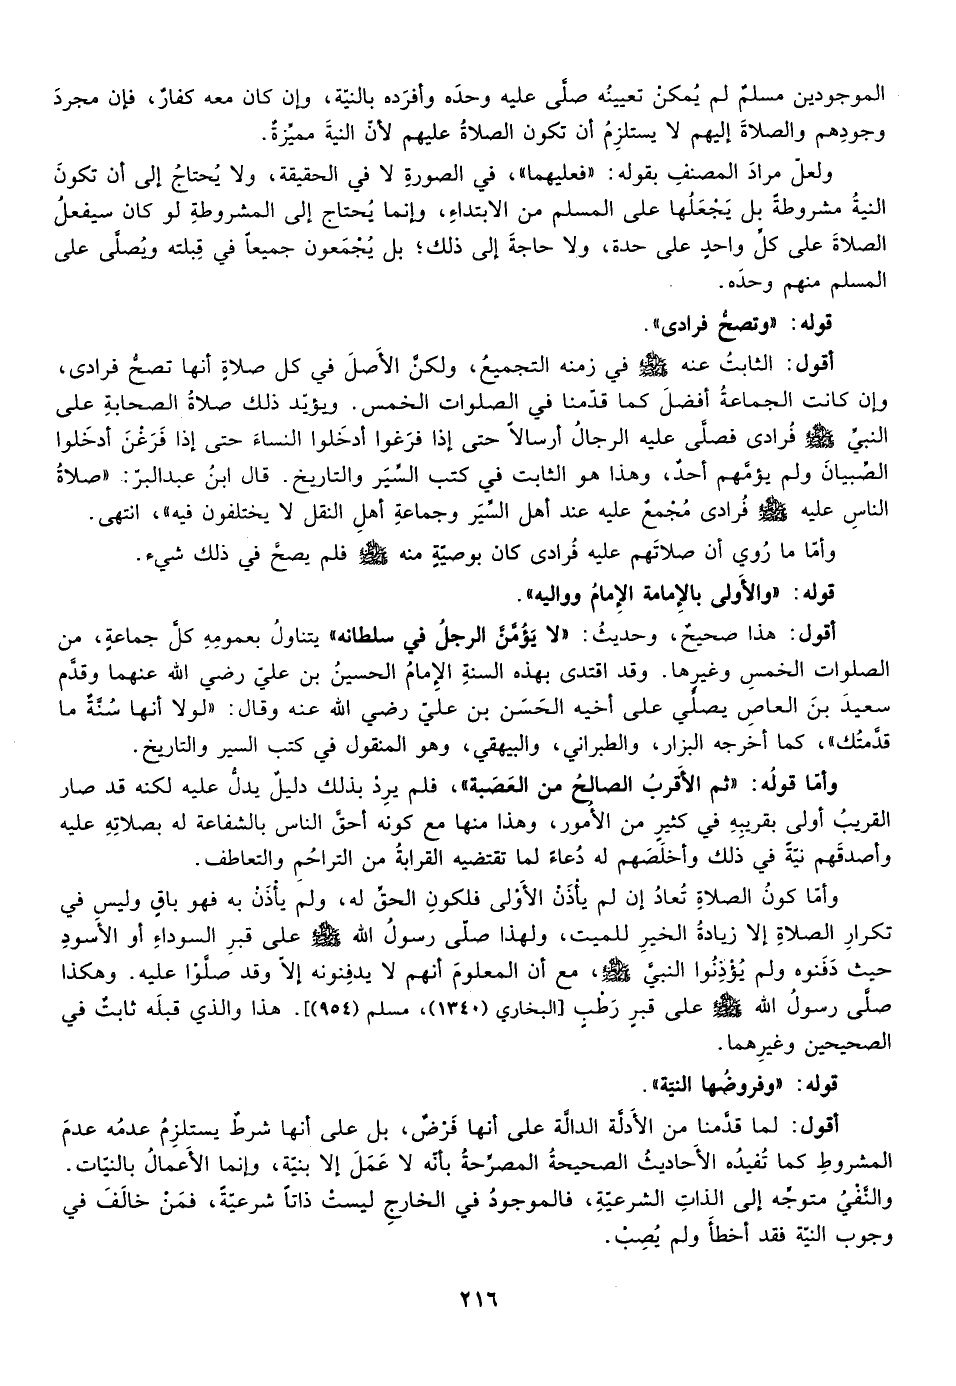 الموجودين مسلمٌ لم يُمكنْ تعيينُه صلَّى عليه وحدَه وأفرَده بالنيّة، وإن كان معه كفارٌ، فإن مجردَ
وجودِهم والصلاةَ إليهم لا يستلزِمُ أن تكون الصلاةُ عليهم لأنّ النيةَ مميِّزةٌ.
ولعلّ مرادَ المصنفِ بقوله: «فعليهما»، في الصورةِ لا في الحقيقة، ولا يُحتاجُ إلى أن تكونَ
النيةُ مشروطةً بل يَجْعَلُها على المسلم من الابتداءِ، وإنما يُحتاج إلى المشروطةِ لو كان سيفعلُ
الصلاةَ على كلِّ واحدٍ على حدة، ولا حاجةَ إلى ذلك؛ بل يُجْمَعون جميعاً في قِبلته ويُصلَّى على
المسلم منهم وحدَه.
قوله: «وتصحُّ فرادى».
أقول: الثابتُ عنه ﷺ في زمنه التجميعُ، ولكنَّ الأصلَ في كل صلاةٍ أنها تصحُّ فرادى،
وإن كانت الجماعةُ أفضلَ كما قدّمنا في الصلوات الخمس. ويؤيّد ذلك صلاةُ الصحابةِ على
النبيِّ ﷺ فُرادى فصلَّى عليه الرجالُ أرسالاً حتى إذا فرَغوا أدخَلوا النساءَ حتى إذا فَرَغْنَ أدخَلوا
الصِّبيانَ ولم يؤمَّهم أحدٌ، وهذا هو الثابت في كتب السِّيَر والتاريخ. قال ابنُ عبدالبرّ: «صلاةُ
الناسِ عليه ﷺ فُرادى مُجْمعٌ عليه عند أهل السِّيَر وجماعةِ أهلِ النقل لا يختلفون فيه»، انتهى.
وأمّا ما رُوي أن صلاتَهم عليه فُرادى كان بوصيّةٍ منه ﷺ فلم يصحَّ في ذلك شيء.
قوله: «والأَولى بالإمامة الإمامُ وواليه».
أقول: هذا صحيحٌ، وحديثُ: «لا يَؤُمَّنَّ الرجلُ في سلطانه» يتناولُ بعمومِهِ كلَّ جماعةٍ، من
الصلوات الخمسِ وغيرِها. وقد اقتدى بهذه السنةِ الإمامُ الحسينُ بن عليّ رضي الله عنهما وقدَّم
سعيدَ بنَ العاص يصلِّي على أخيه الحَسَن بن عليّ رضي الله عنه وقال: «لولا أنها سُنَّةٌ ما
قدَّمتُك»، كما أخرجه البزار، والطبراني، والبيهقي، وهو المنقول في كتب السير والتاريخ.
وأمّا قولُه: «ثم الأقربُ الصالحُ من العَصَبة»، فلم يرِدْ بذلك دليلٌ يدلُّ عليه لكنه قد صار
القريبُ أولى بقريبِهِ في كثيرٍ من الأمور، وهذا منها مع كونه أحقَّ الناس بالشفاعة له بصلاتِهِ عليه
وأصدقَهم نيّةً في ذلك وأخلَصَهم له دُعاءً لما تقتضيه القرابةُ من التراحُم والتعاطف.
وأمّا كونُ الصلاةِ تُعادُ إن لم يأذَنْ الأوْلى فلكونِ الحقّ له، ولم يأذَنْ به فهو باقٍ وليس في
تكرارِ الصلاةِ إلا زيادةُ الخيرِ للميت، ولهذا صلّى رسولُ الله ﷺ على قبرِ السوداءِ أو الأسودِ
حيث دَفَنوه ولم يُؤْذِنُوا النبيَّ ﷺ، مع أن المعلومَ أنهم لا يدفِنونه إلاّ وقد صلَّوْا عليه. وهكذا
صلَّى رسولُ الله ﷺ على قبرٍ رَطْبٍ [البخاري (١٣٤٠)، مسلم (٩٥٤)]. هذا والذي قبلَه ثابتٌ في
الصحيحين وغيرِهما.
قوله: «وفروضُها النيّة».
أقول: لما قدَّمنا من الأدلَّة الدالَّة على أنها فَرْضٌ، بل على أنها شرطٌ يستلزمُ عدمُه عدمَ
المشروطِ كما تُفيدُه الأحاديثُ الصحيحةُ المصرّحةُ بأنّه لا عَمَلَ إلا بنيّة، وإنما الأعمالُ بالنيّات.
والنَّفْيُ متوجّه إلى الذاتِ الشرعيّةِ، فالموجودُ في الخارج ليستْ ذاتاً شرعيّةً، فمَنْ خالَفَ في
وجوب النيّة فقد أخطأَ ولم يُصِبْ.
٢١٦